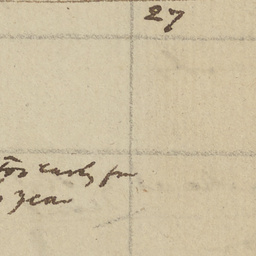 27
too early for
year